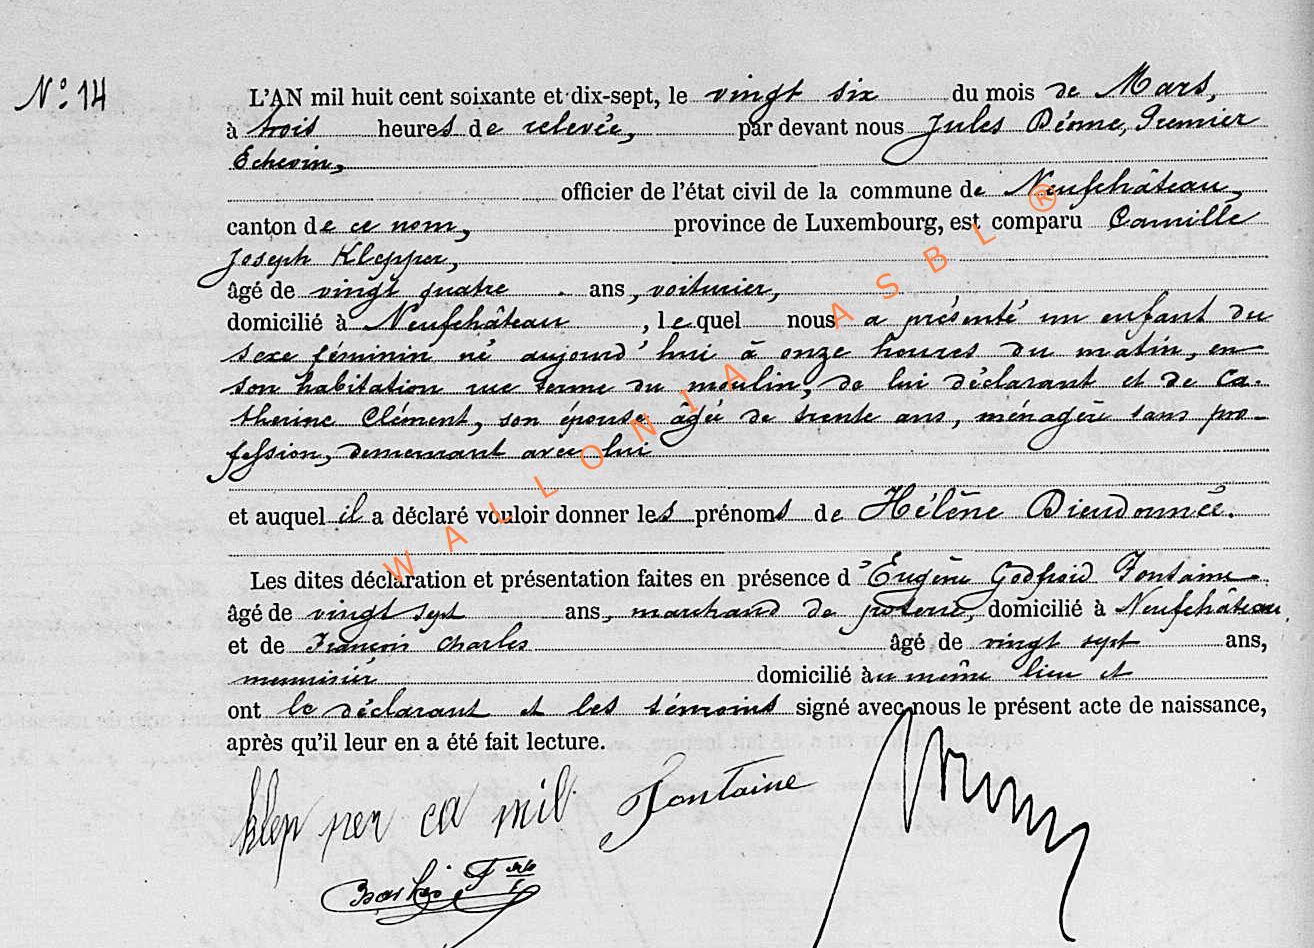 N.° 14
L'AN mil huit cent soixante et dix-sept, le vingt six du mois de Mars,
à trois heures de relevée, par devant nous Jules Dénne, Premier
Echevin,
officier de l'état civil de la commune de Neufchâteau,
canton de ce nom, province de Luxembourg, est comparu Camille
Joseph Klepper,
âgé de vingt quatre ans, voiturier,
domicilié à Neufchâteau, lequel nous a présenté un enfant du
sexe féminin né aujourd'hui à onze heures du matin, en
son habitation rue terme du moulin, de lui déclarant et de Ca-
therine Clément, son épouse âgée de trente ans, ménagère sans pro-
fession, demeurant avec lui
et auquel il a déclaré vouloir donner les prénoms de Hélène Dieudonnée.
Les dites déclaration et présentation faites en présence d'Eugène Godfroid Fontaine
âgé de vingt sept ans, marchand de poterie, domicilié à Neufchâteau,
et de François Charles âgé de vingt sept ans,
menuisier domicilié au même lieu et
ont le déclarant et les témoins signé avec nous le présent acte de naissance,
après qu'il leur en a été fait lecture.
klep per ca mil Fontaine
WALLONIA ASBL ®